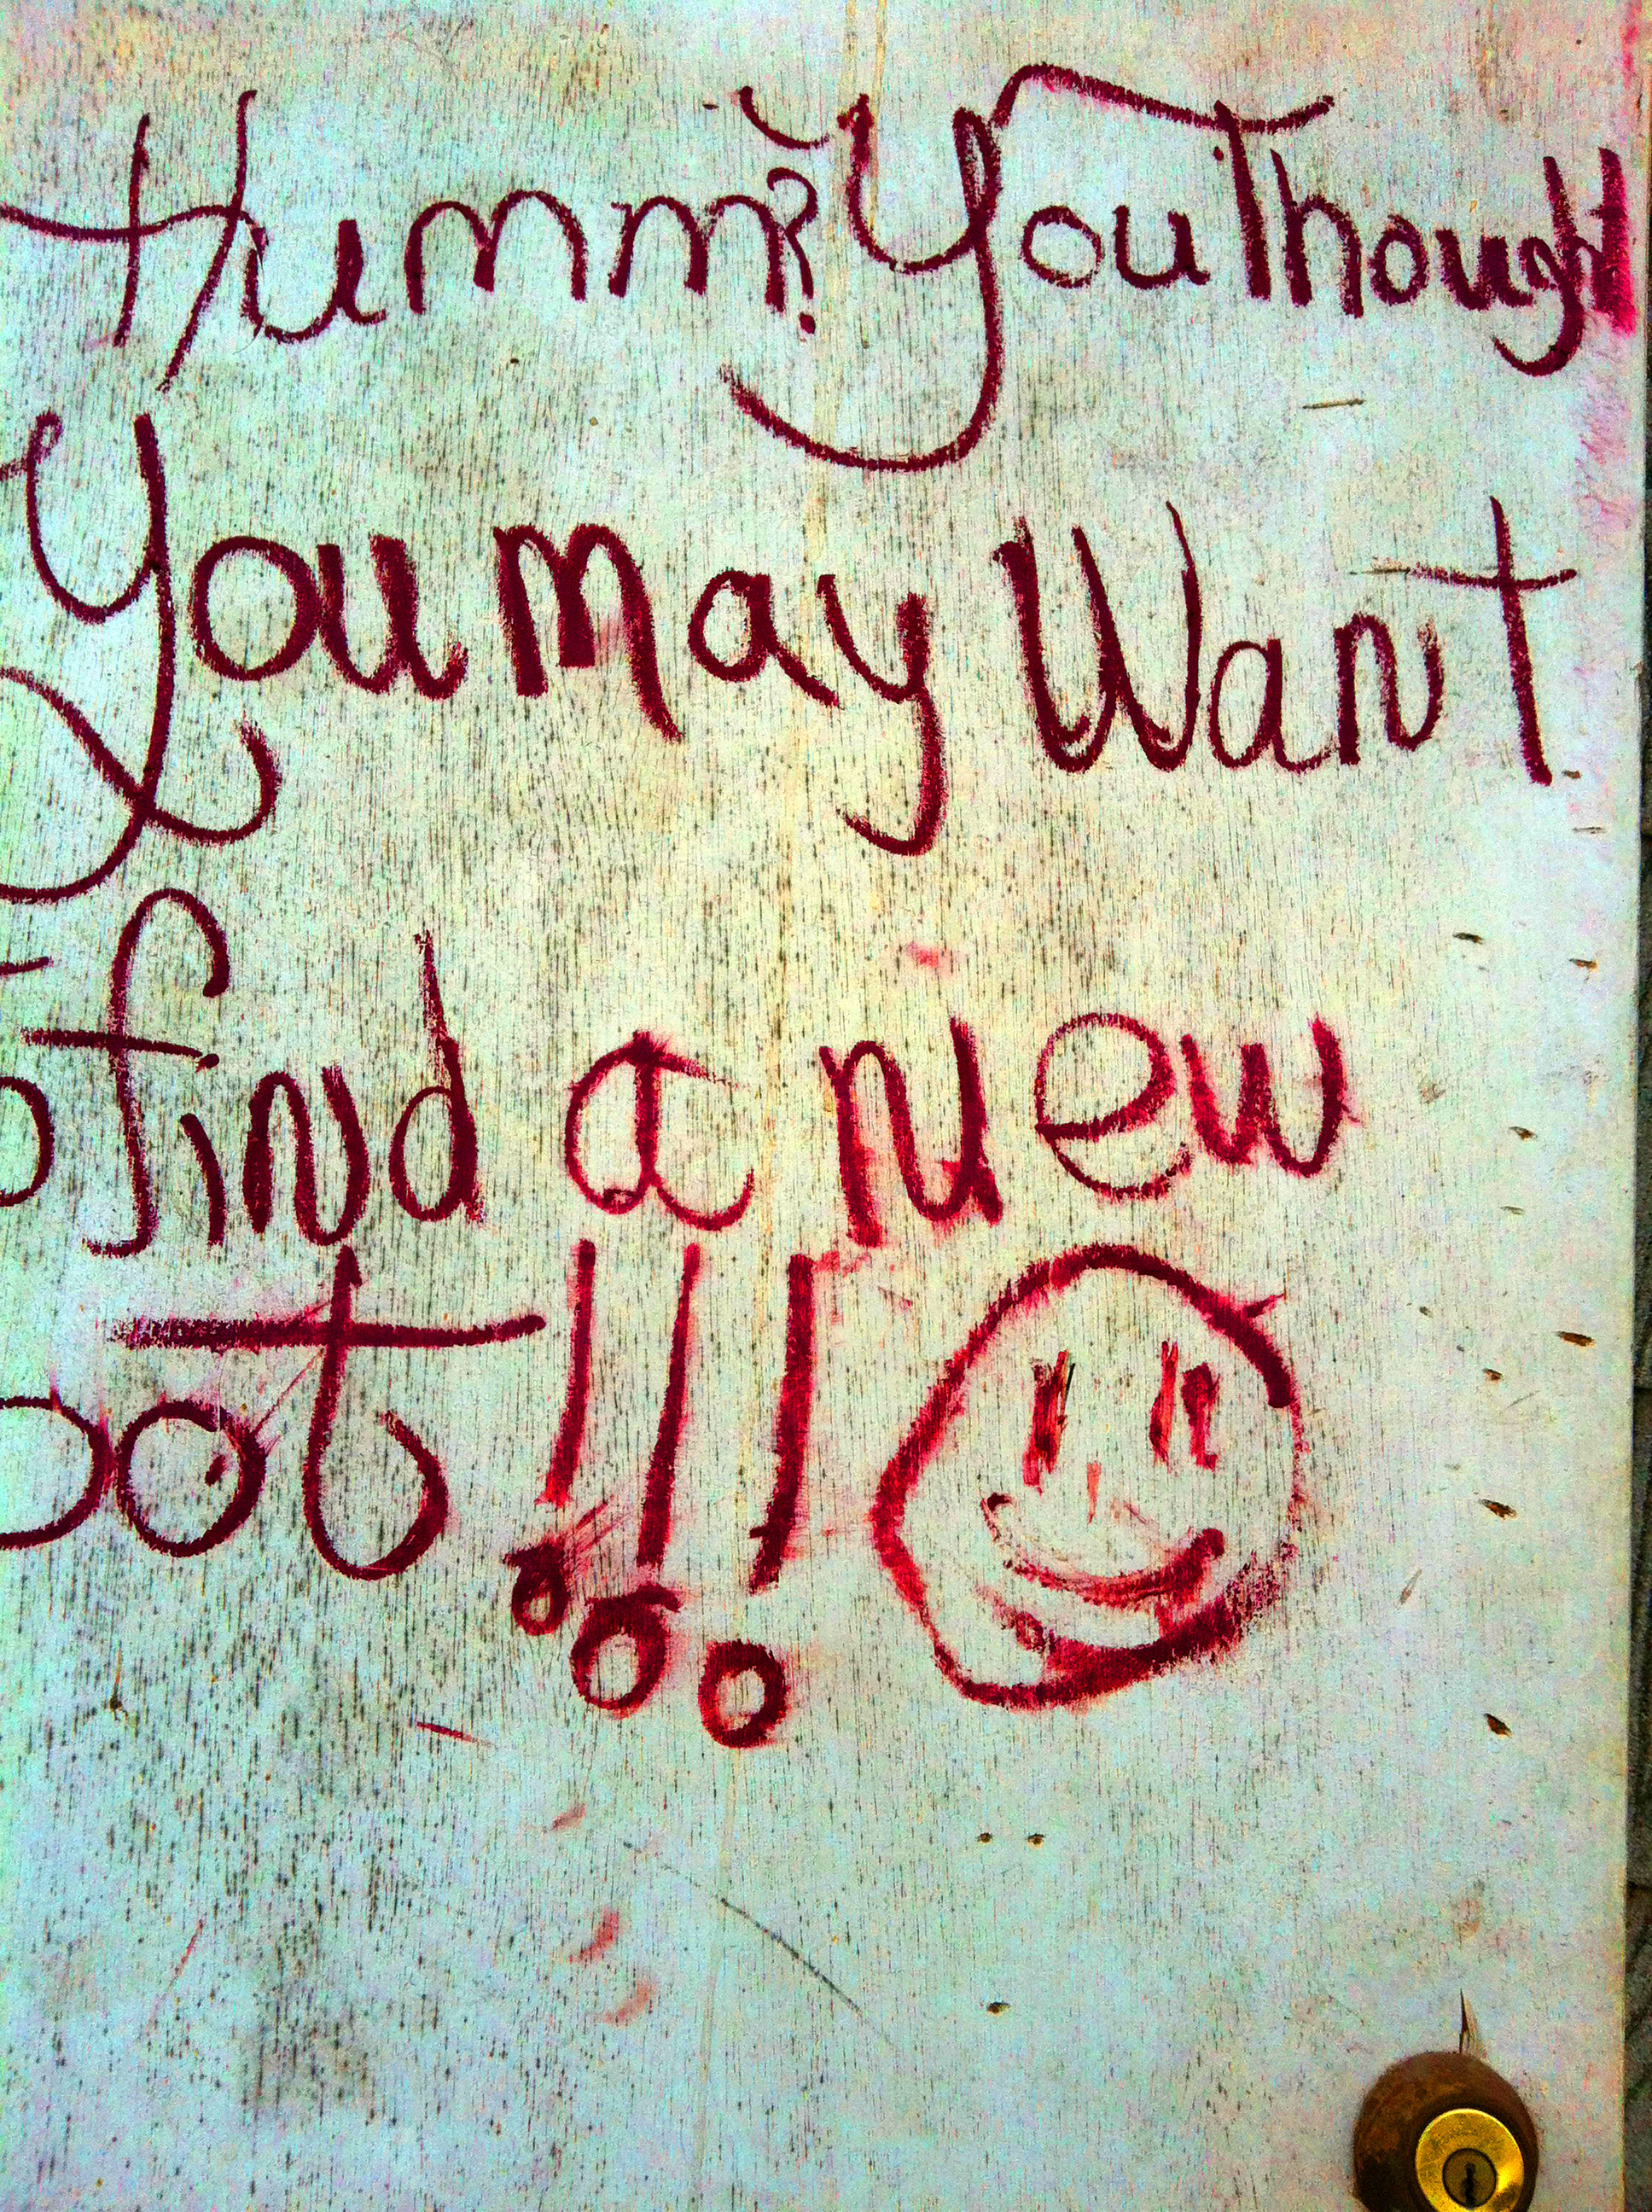 Humm? You Thought
You may Want
o find a new
oot!!!